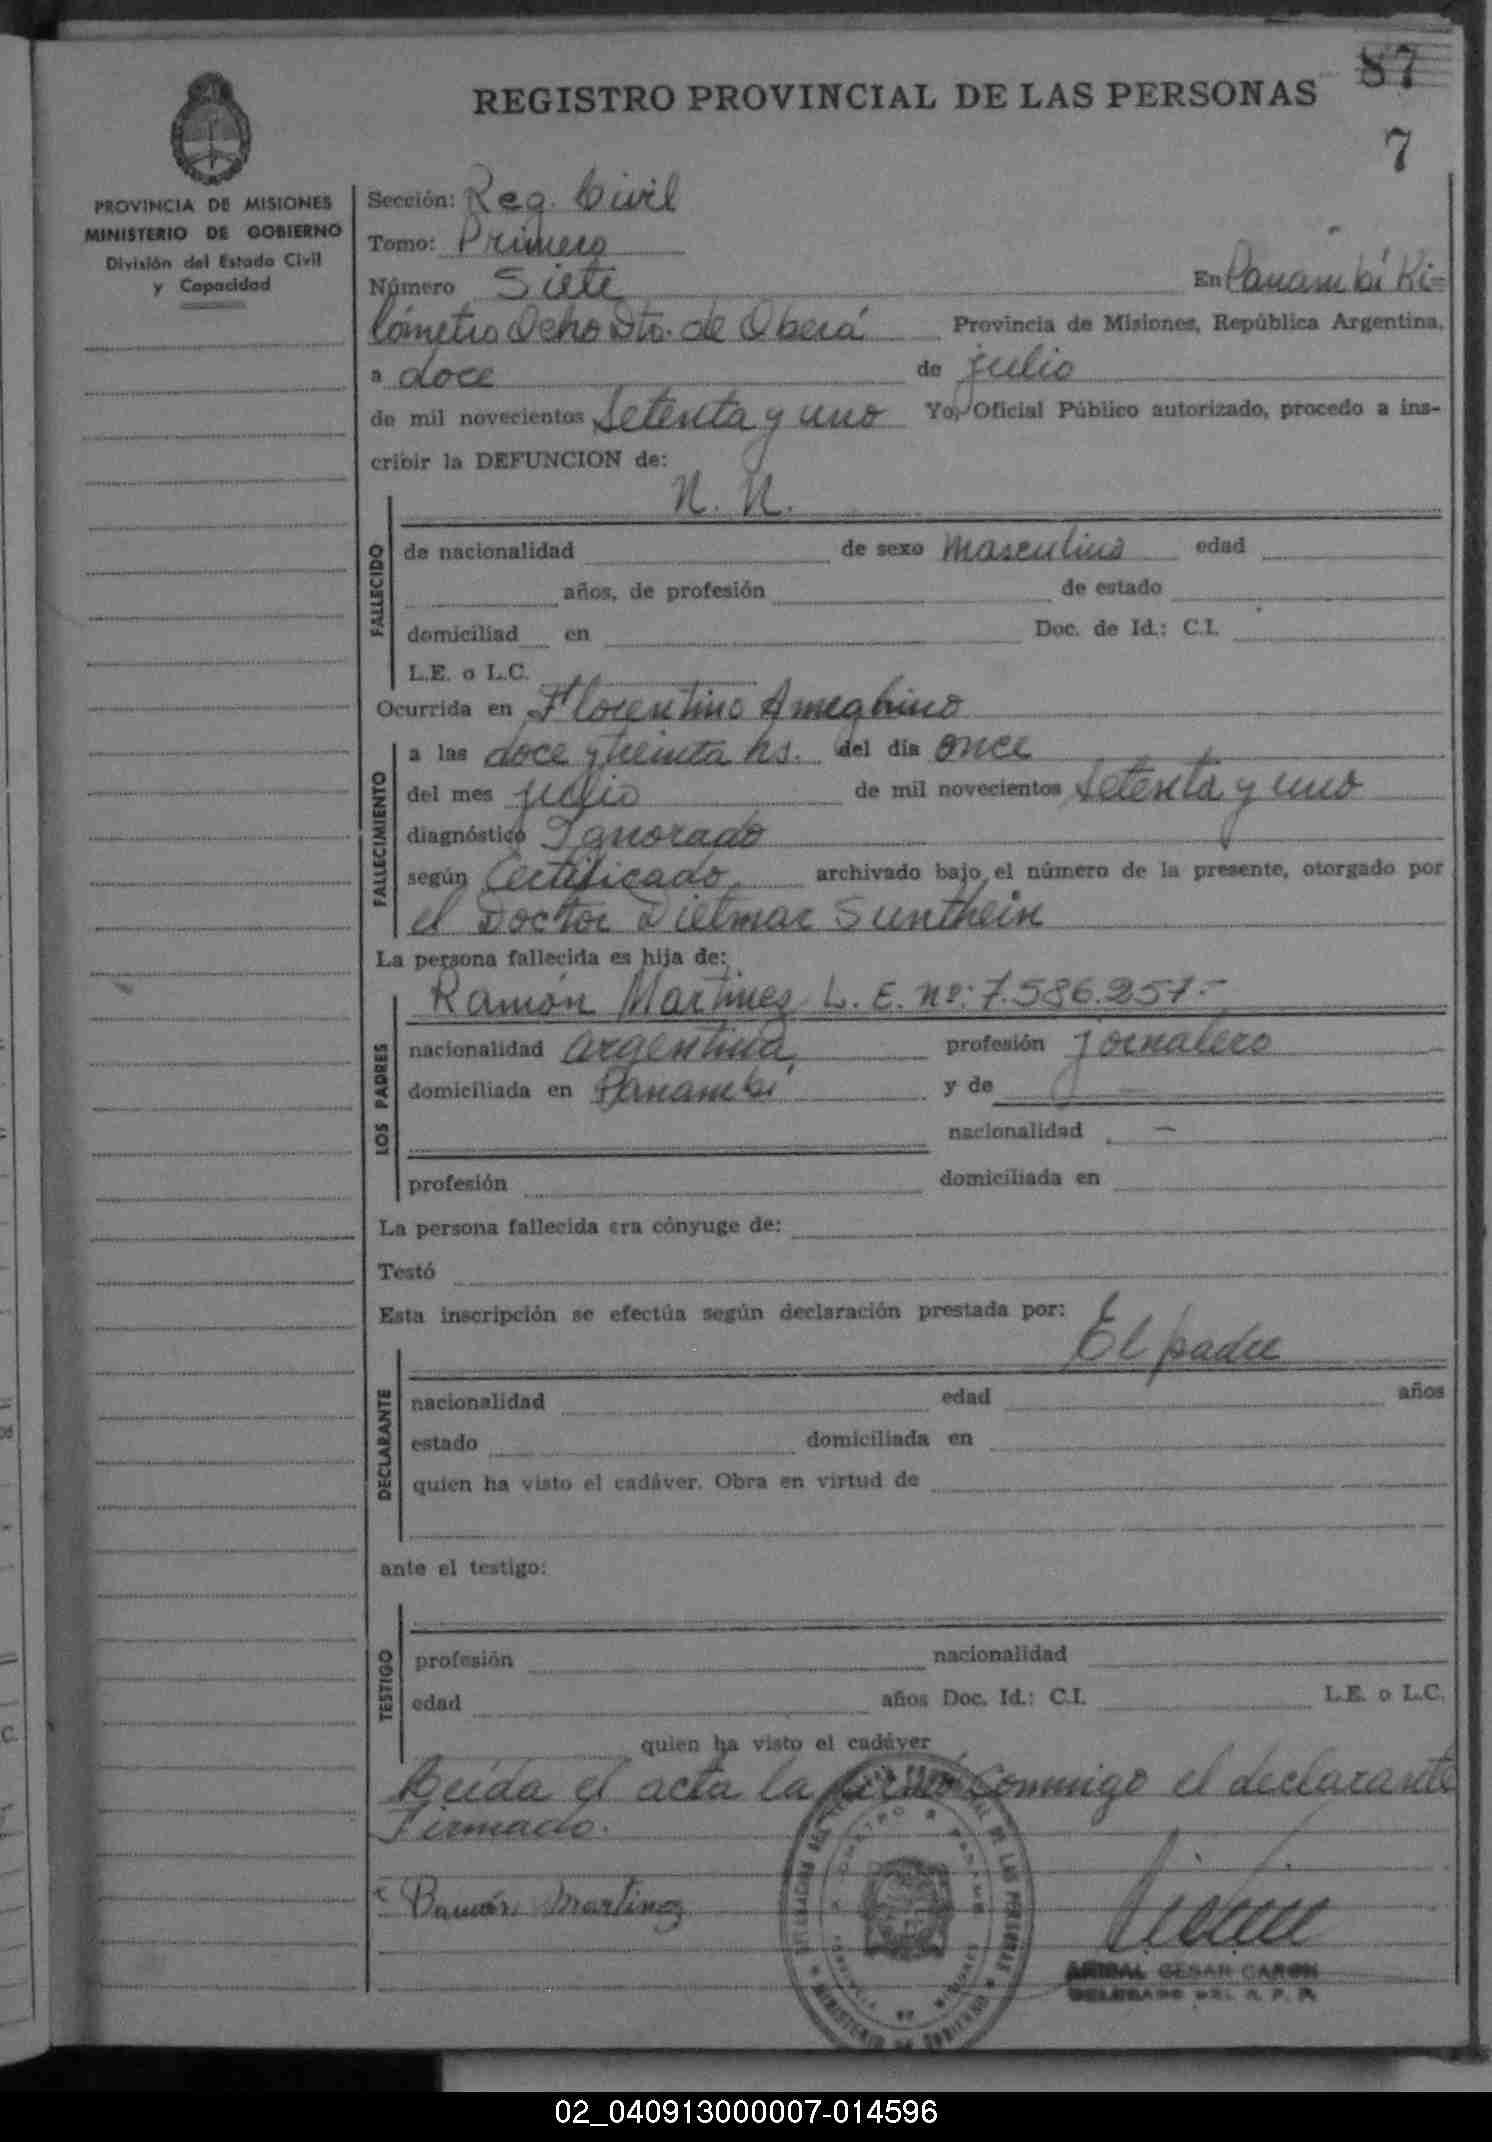 87
REGISTRO PROVINCIAL DE LAS PERSONAS
7
PROVINCIA DE MISIONES
MINISTERIO DE GOBIERNO
División del Estado Civil
y Capacidad
Sección: Reg. Civil
Tomo: Primero
Número Siete En Panambí Ki-
lómetro Ocho Dto. de Oberá Provincia de Misiones, República Argentina,
a doce de julio
de mil novecientos Setenta y uno Yo, Oficial Público autorizado, procedo a ins-
cribir la DEFUNCION de:
N. N.
FALLECIDO
de nacionalidad de sexo masculino edad
años, de profesión de estado
domiciliad en Doc. de Id.: C.I.
L.E. o L.C.
Ocurrida en Florentino Ameghino
FALLECIMIENTO
a las doce y treinta hs. del día once
del mes julio de mil novecientos Setenta y uno
diagnóstico Ignorado
según Certificado archivado bajo el número de la presente, otorgado por
el Doctor Dietmar Sunthein
La persona fallecida es hija de:
LOS PADRES
Ramón Martinez L. E. nº: 7.586.257.-
nacionalidad argentina, profesión jornalero
domiciliada en Panambí y de
nacionalidad -
profesión domiciliada en
La persona fallecida era cónyuge de:
Testó
Esta inscripción se efectúa según declaración prestada por:
El padre
DECLARANTE
nacionalidad edad años
estado domiciliada en
quien ha visto el cadáver. Obra en virtud de
ante el testigo:
TESTIGO
profesión nacionalidad
edad años Doc. Id.: C.I. L.E. o L.C.
quien ha visto el cadáver
Leída el acta la firmó Conmigo el declarante
Firmado.
Ramón Martinez
DE LAS PERSONAS
MINISTERIO DE GOBIERNO
ANIBAL CESAR CARON
DELEGADO DEL R. P. P.
02_040913000007-014596